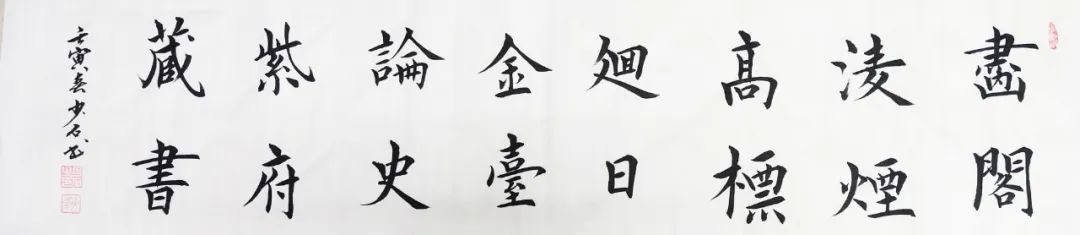 畫閣
淩煙
高標
廻日
金臺
論史
紫府
藏書
壬寅春少石書